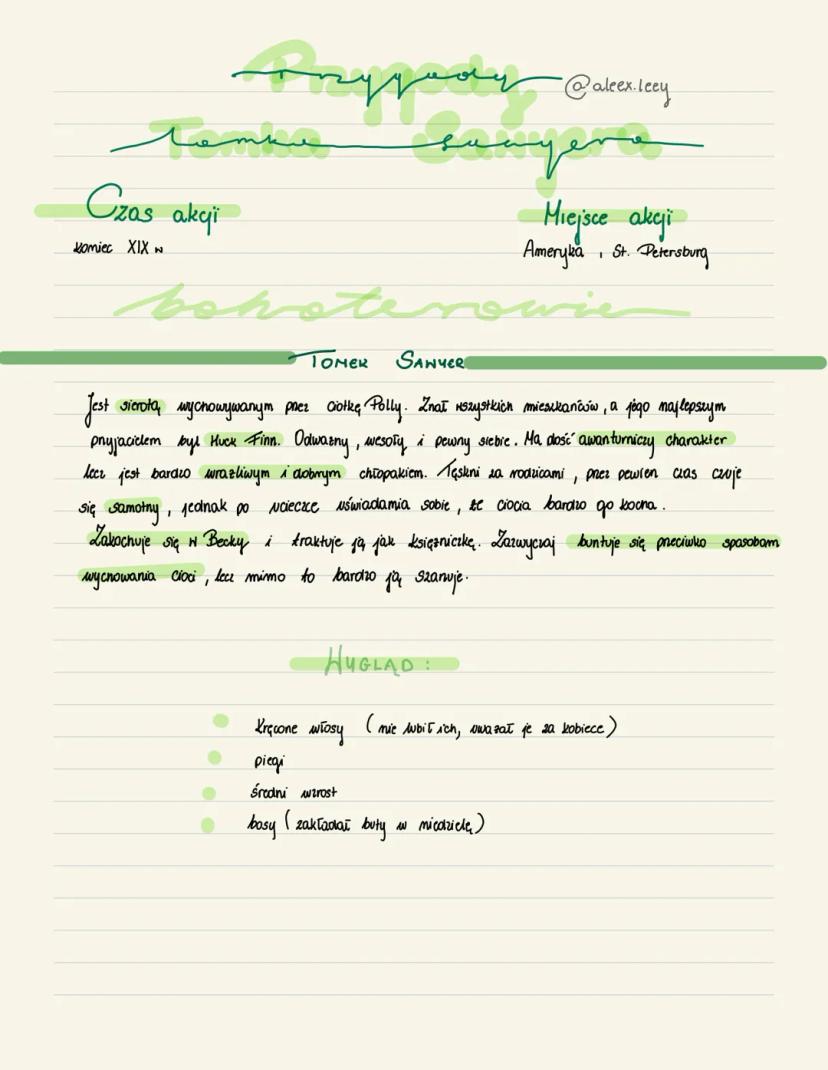 Przygody @aleex.leey
Tomka Sawyera
Czas akcji Miejsce akcji
koniec XIX w Ameryka, St. Petersburg
bohaterowie
TOMEK SAWYER
Jest sierotą wychowywanym przez ciotkę Polly. Znał wszystkich mieszkańców, a jego najlepszym
przyjacielem był Huck Finn. Odważny, wesoły i pewny siebie. Ma dość awanturniczy charakter
lecz jest bardzo wrażliwym i dobrym chłopakiem. Tęskni za rodzicami, przez pewien czas czuje
się samotny, jednak po ucieczce uświadamia sobie, że ciocia bardzo go kocha.
Zakochuje się w Becky i traktuje ją jak księżniczkę. Zazwyczaj buntuje się przeciwko sposobom
wychowania cioci, lecz mimo to bardzo ją szanuje.
WYGLĄD:
kręcone włosy (nie lubił ich, uważał je za kobiece)
piegi
średni wzrost
bosy (zakładał buty w niedzielę)